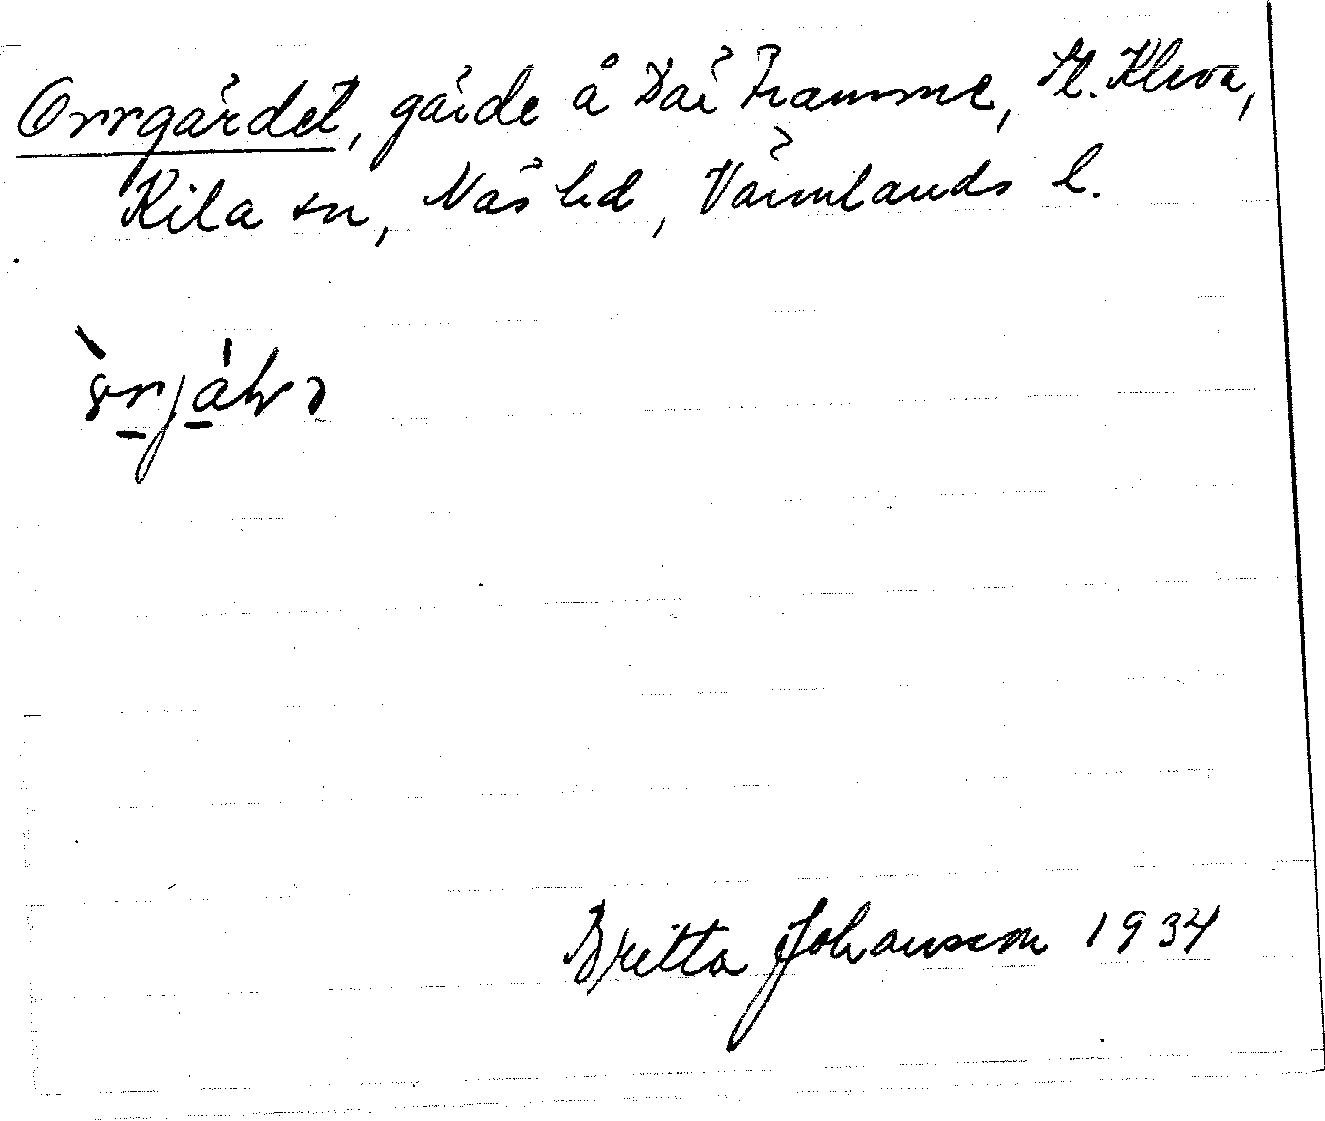 Orrgärdet, gärde å Där Framme, St. Kleva,
Kila sn, Näs hd, Värmlands l.
Britta Johansson 1934